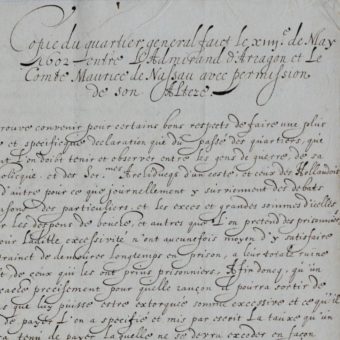 Copie du quartier general faict le xiiije de May
1602 entre l'Admirand d'Arragon et le
Comte Maurice de Nassau avec permission
de son Alteze.
trouve convenir pour certains bons respects de faire une plus
et specificque declaration que du passé des quartiers, que
l'on doibt tenir et observer entre les gens de guerre, de sa
olicque, et des Ser.mes Archiducqs d'un costé, et ceux des Hollandois
d'autre pour ce que journellement y surviennent des debats
ançons des particuliers, et les exces et grandes sommes d'icelles
ur les despens de bouche, et autres que l'on pretend des prisonniers
our ladite excessivité n'ont aucunefois moyen d'y satisfaire
traincts de demourer longtemps en prison, a leur totale ruine
et de ceux qui les ont prins prisonniers, Affin doncq, qu'un
cache precisement pour quelle rançon il pourra sortir de
s que luy puisse estre extorquée somme excessive et ce qu'il
de payer l'on a specifié et mis par escrit la tauxe qu'un
a tenu de payer laquelle ne se devra exceder en façon